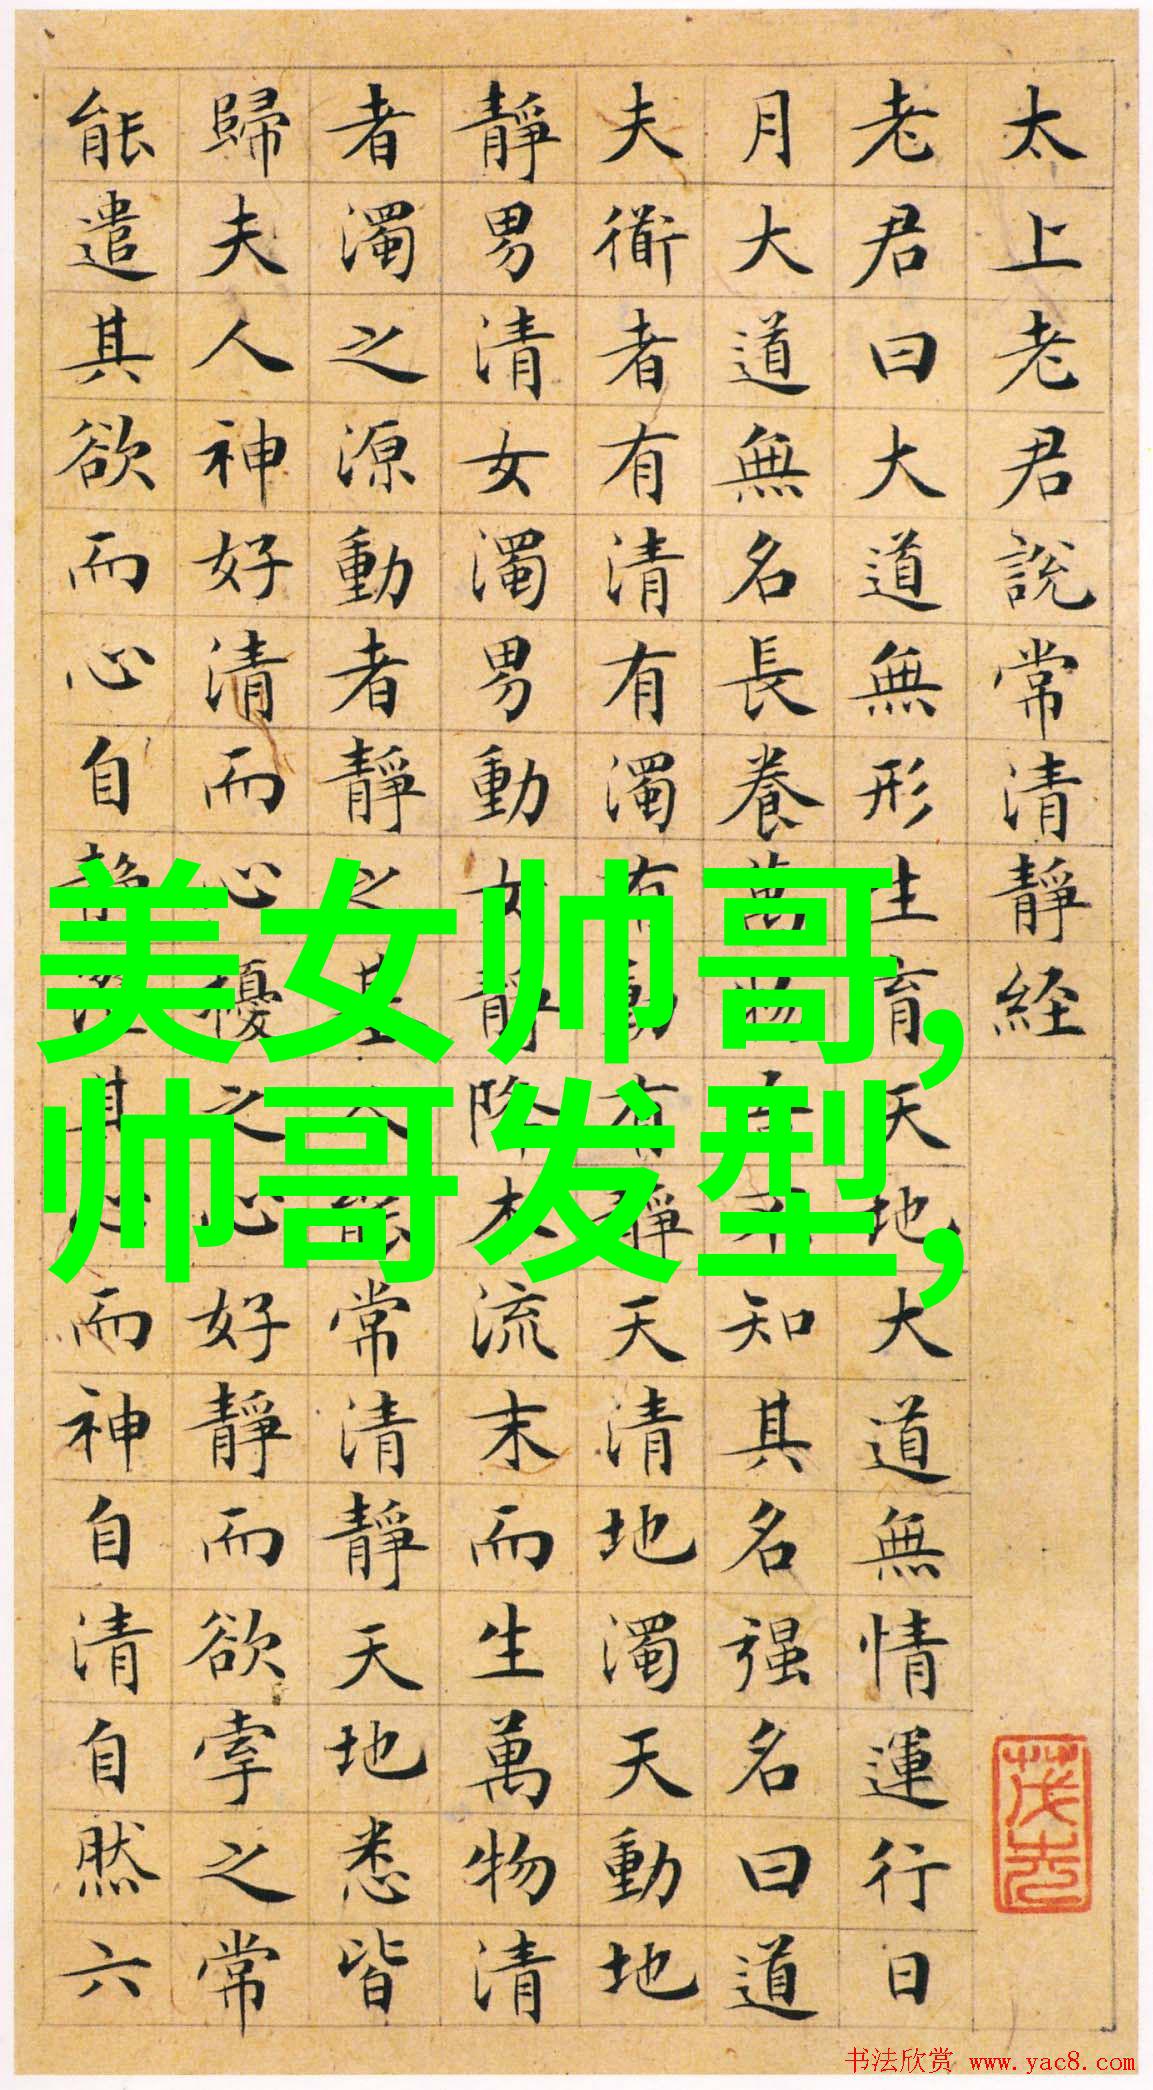 太上老君說常清靜経
老君曰大道無形生育天地大道無情運行日
月大道無名長養萬物知其名强名曰道
夫衜者有清有濁有動有靜天清地濁天動地
靜男清女濁男動女靜降本流末而生萬物清
者濁之源動者靜之基人能常清靜天地悉皆
歸夫人神好清而心擾之心好靜而欲牽之常
能遣其欲而心自静澄其心而神自清自然六
美女帅哥,
帅哥发型,
书法欣赏 www.yac8.com